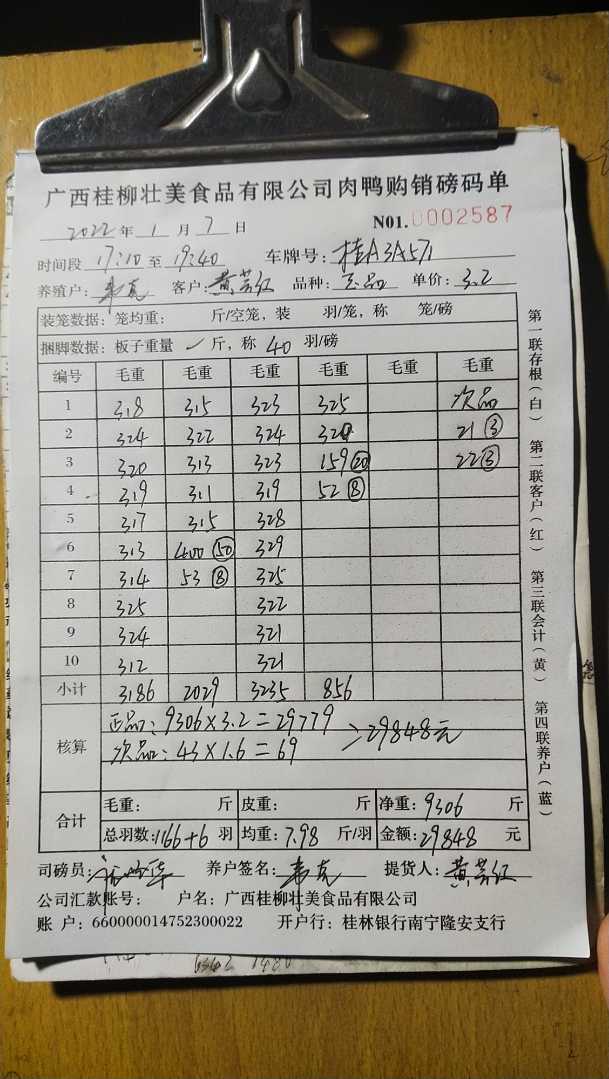 广西桂柳壮美食品有限公司肉鸭购销磅码单
2022年1月7日 N01.0002587
时间段 17:10 至 19:40 车牌号: 桂A3A571
养殖户: 韦克 客户: 黄芸红 品种: 正品 单价: 3.2
装笼数据: 笼均重: 斤/空笼, 装 羽/笼, 称 笼/磅
捆脚数据: 板子重量 ✓ 斤, 称 40 羽/磅
编号 毛重 毛重 毛重 毛重 毛重 毛重
1 318 315 323 325 次品
2 324 322 324 320 21 ③
3 320 313 323 159 ⑳ 22 ③
4 319 311 319 52 ⑧
5 317 315 328
6 313 400 ㊿ 329
7 314 53 ⑧ 325
8 325 322
9 324 321
10 312 321
小计 3186 2029 3235 856
核算 正品: 9306×3.2=29779 >29848元
次品: 43×1.6=69
合计 毛重: 斤 皮重: 斤 净重: 9306 斤
总羽数: 1166+6 羽 均重: 7.98 斤/羽 金额: 29848 元
司磅员: 养户签名: 韦克 提货人: 黄芸红
公司汇款账号: 户名: 广西桂柳壮美食品有限公司
账 户: 660000014752300022 开户行: 桂林银行南宁隆安支行
第一联存根(白) 第二联客户(红) 第三联会计(黄) 第四联养户(蓝)